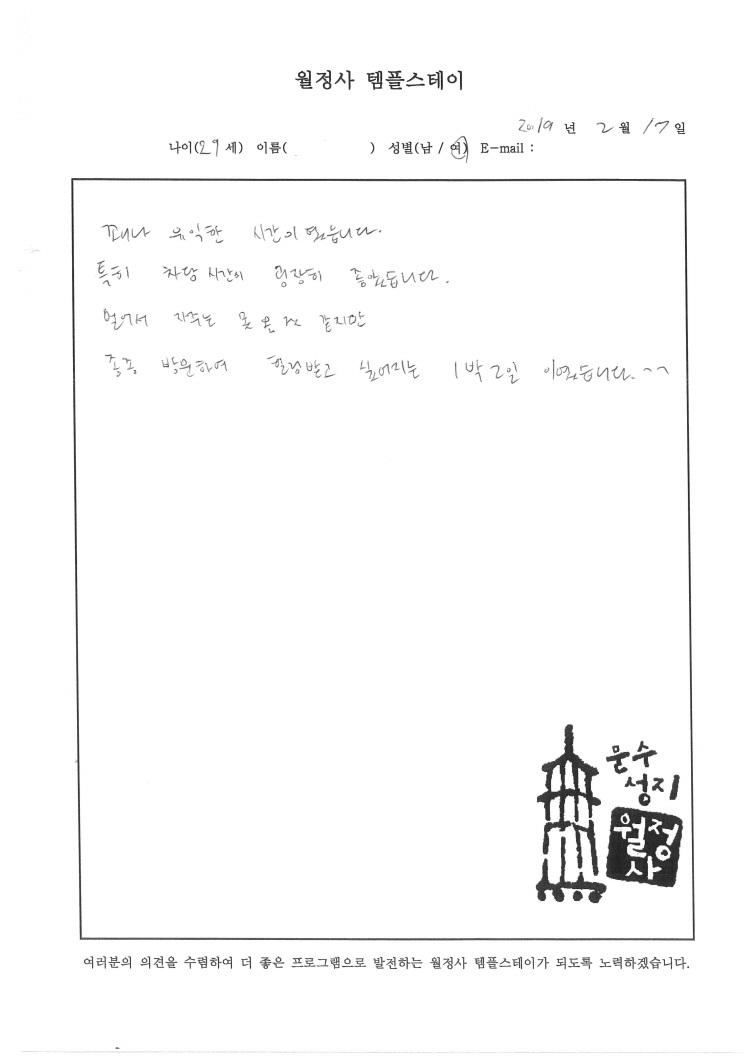 월정사 템플스테이
2019 년 2 월 17 일
나이(29 세) 이름( ) 성별(남 / 여) E-mail :
꽤나 유익한 시간이 였습니다.
특히 차담 시간이 굉장히 좋았습니다.
멀어서 자주는 못 올 것 같지만
종종 방문하여 힐링받고 싶어지는 1박 2일 이였습니다. ^^
문수
성지
월정
사
여러분의 의견을 수렴하여 더 좋은 프로그램으로 발전하는 월정사 템플스테이가 되도록 노력하겠습니다.